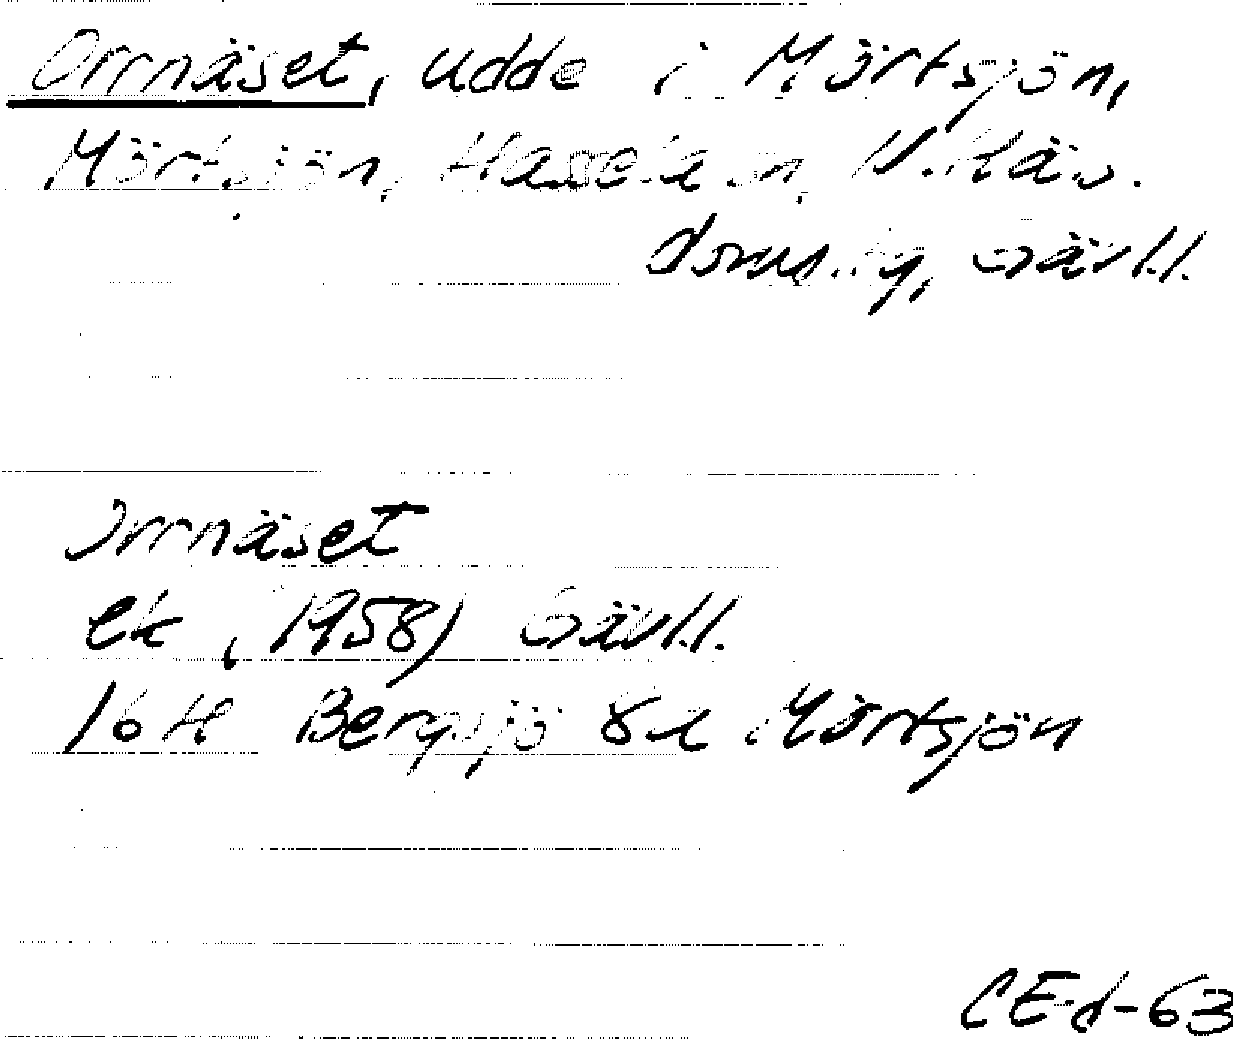 Orrnäset, udde i Mörtsjön,
Mörtsjön, Hassela sn, N. Häls.
domsag, Gävl.l.
Orrnäset
ek (1958) Gävl.l.
16 H Bergsjö 8 d Mörtsjön
CEd-63